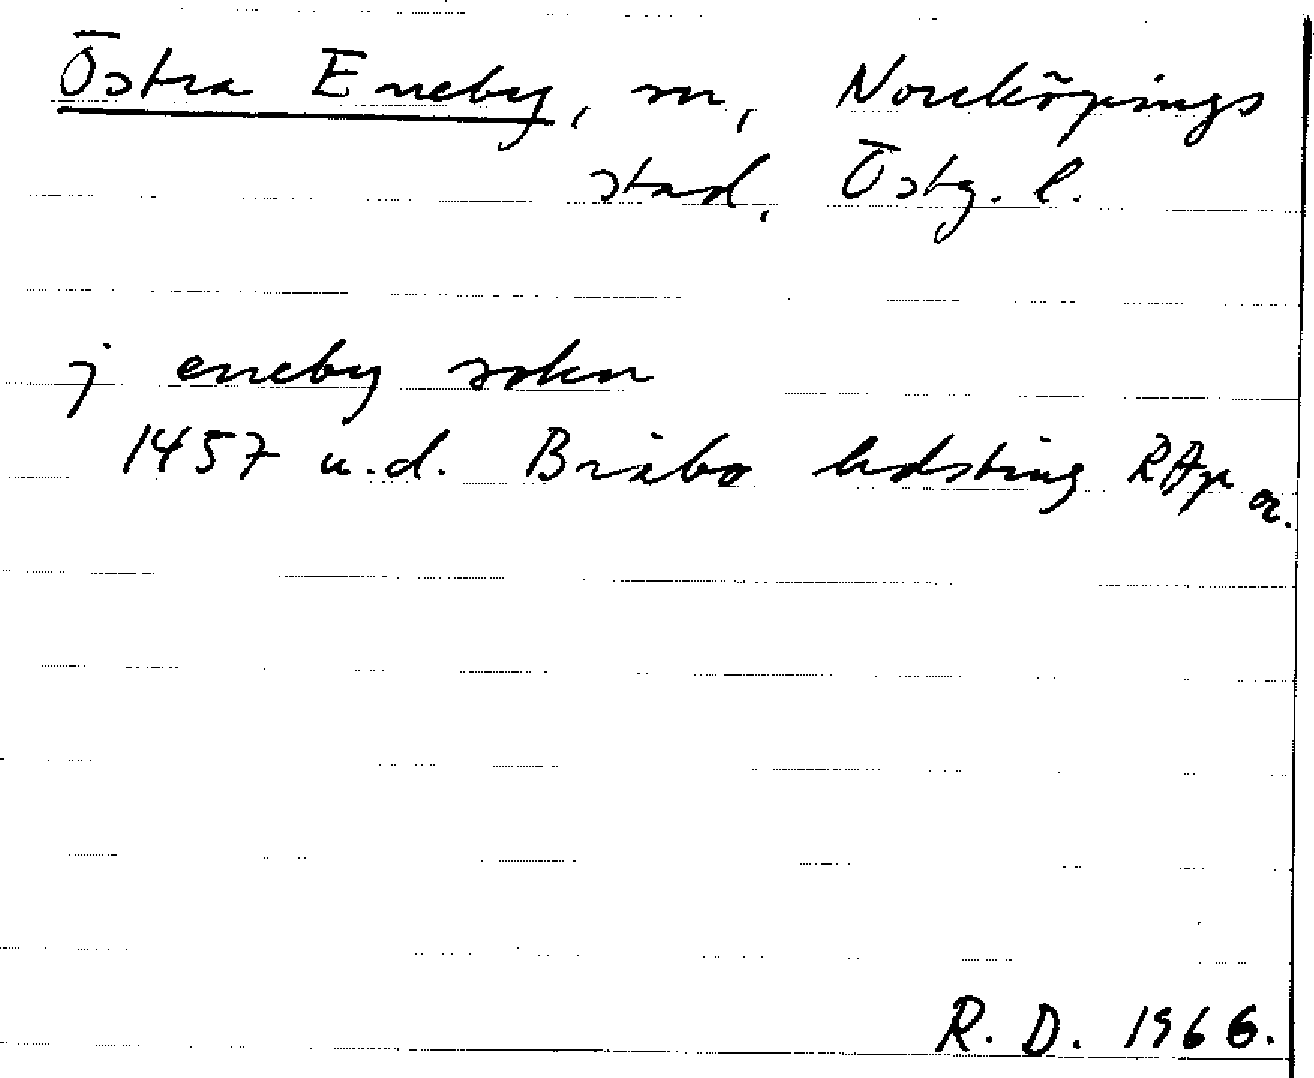 Östra Eneby, sn, Norrköpings
stad, Östg. l.
j eneby sokn
1457 u.d. Bråbo hdsting RAp or.
R. D. 1966.